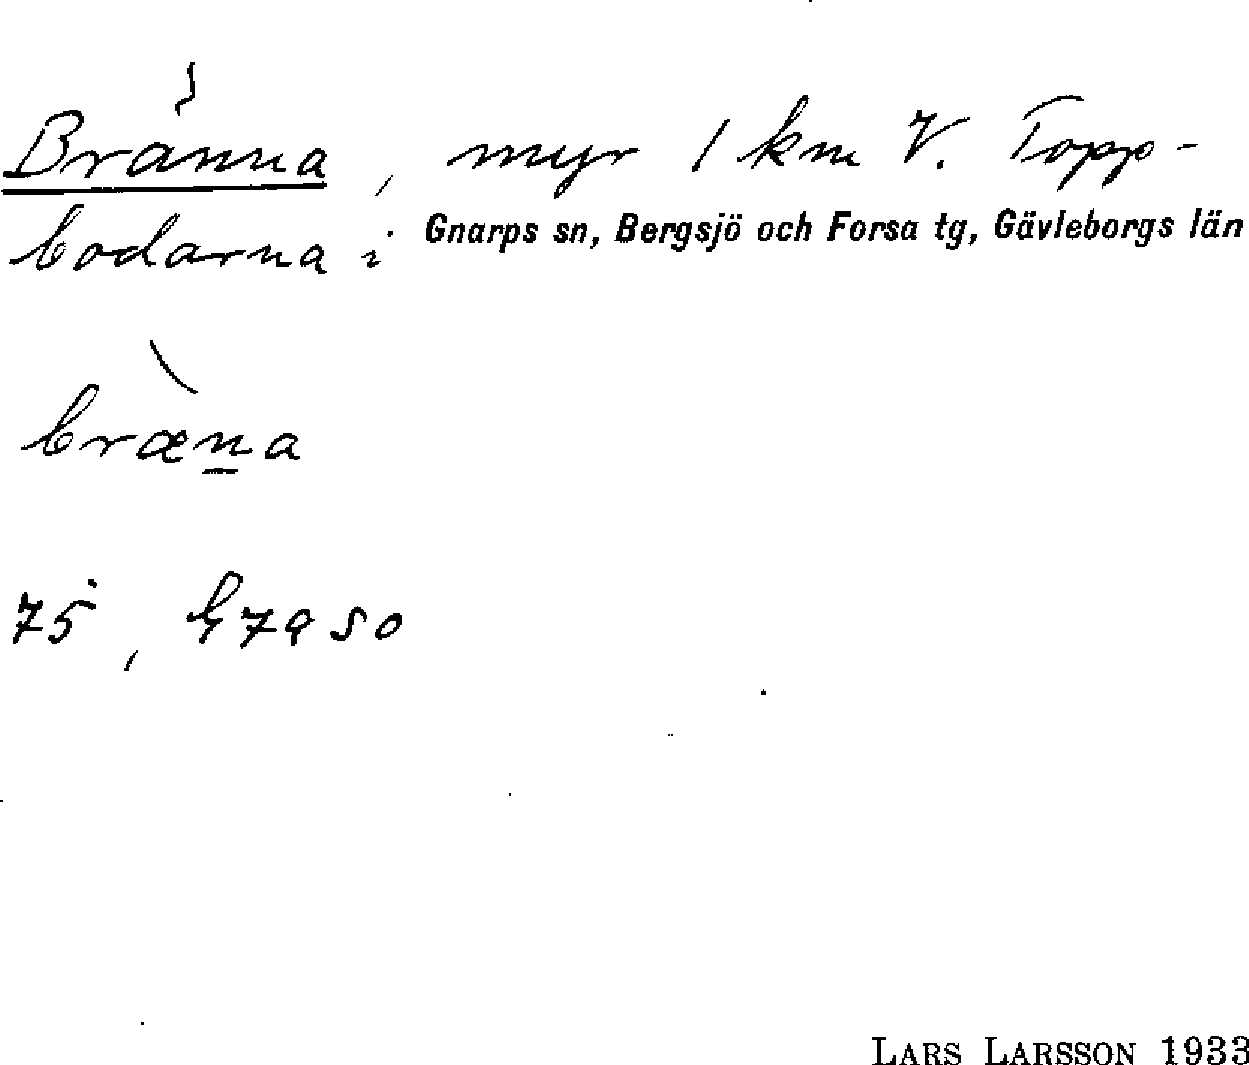 Bränna, myr 1 km V. Topp-
bodarna i Gnarps sn, Bergsjö och Forsa tg, Gävleborgs län
bræna
75,
LARS LARSSON 1933